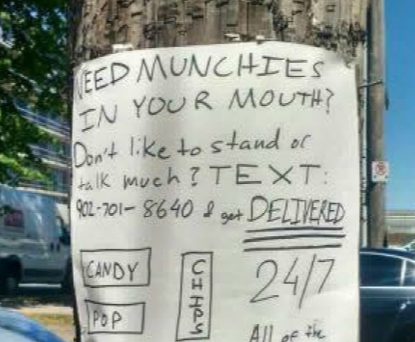 NEED MUNCHIES
IN YOUR MOUTH?
Don't like to stand or
talk much? TEXT:
902-701-8640 & get DELIVERED
CANDY
POP
CHIPS
24/7
All of the